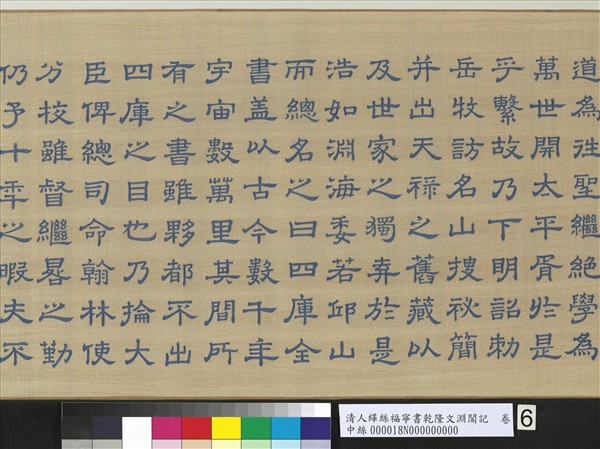 道為徃聖繼絶學為
萬世開太平胥於是
乎繫故乃下明詔勅
岳牧訪名山搜秘簡
并出天祿之舊藏以
及世家之獨弆於是
浩如淵海委若邱山
而總名之曰四庫全
書盖以古今數千年
宇宙數萬里其間所
有之書雖夥都不出
四庫之目也乃掄大
臣俾總司命翰林使
分校雖督繼晷之勤
仍予十年之暇夫不
清人緙絲福寧書乾隆文淵閣記 卷
中絲 000018N000000000
6